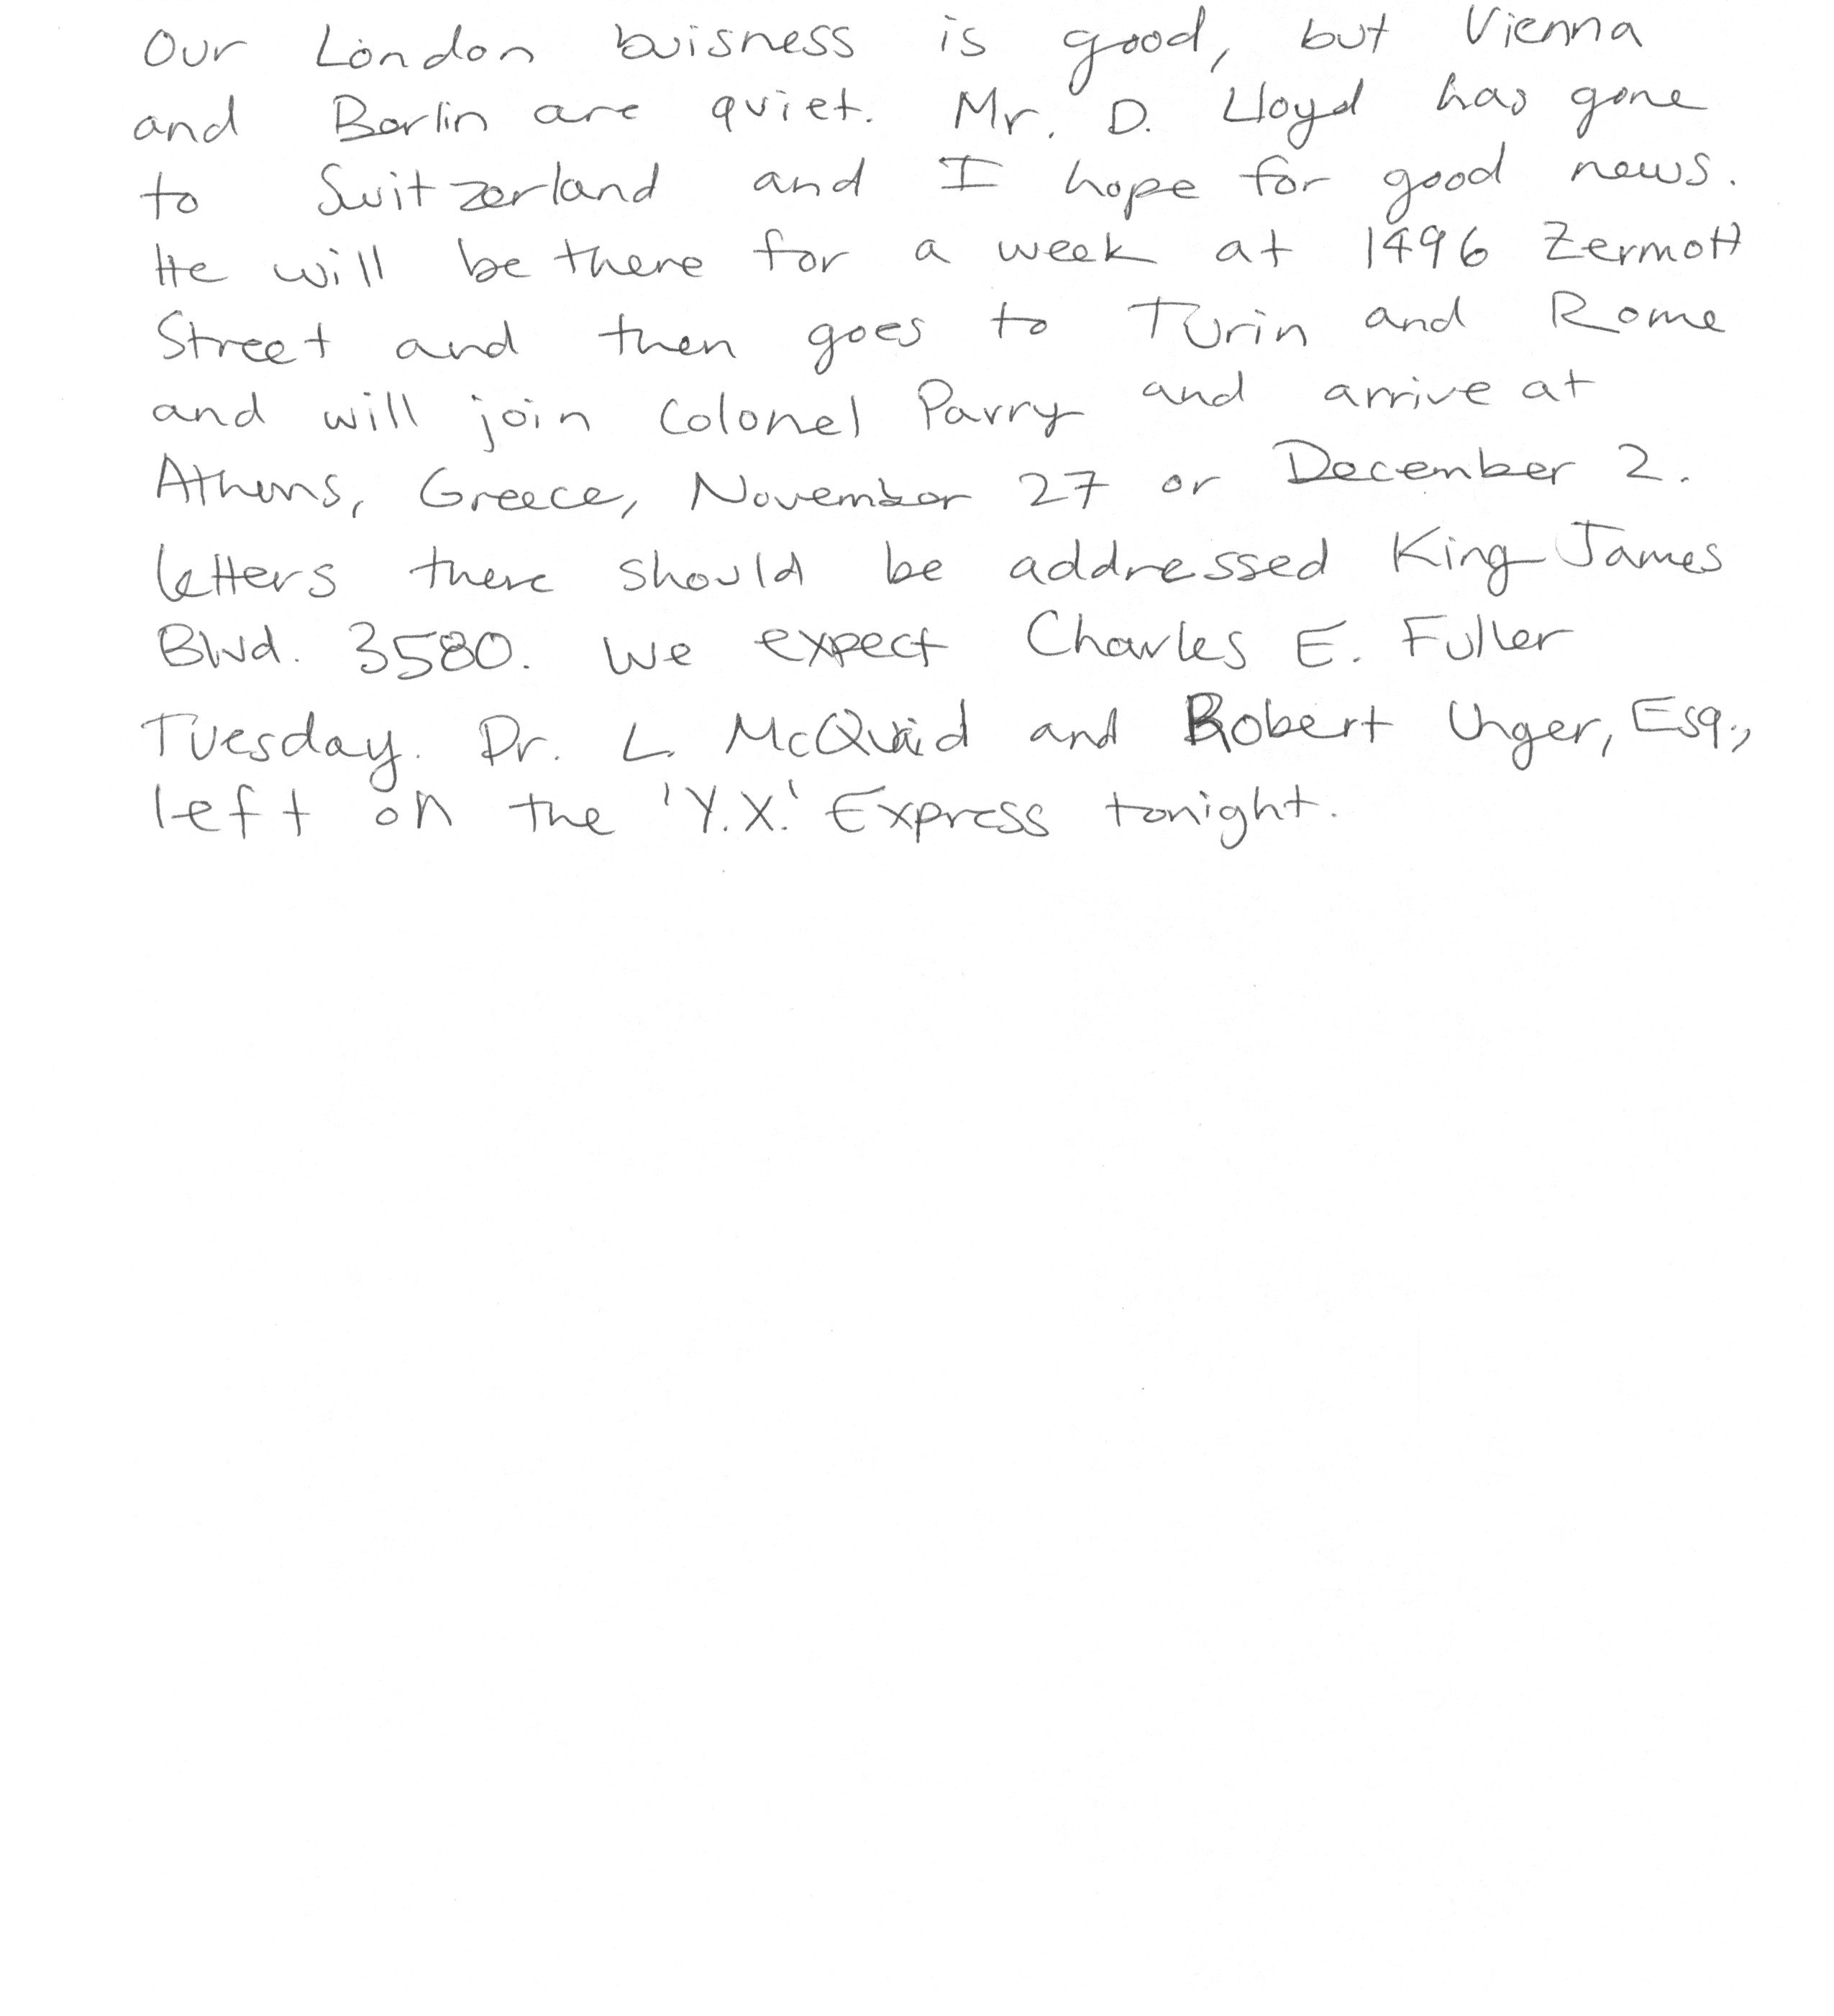 Our London buisness is good, but Vienna
and Berlin are quiet. Mr. D. Lloyd has gone
to Switzerland and I hope for good news.
He will be there for a week at 1496 Zermott
Street and then goes to Turin and Rome
and will join Colonel Parry and arrive at
Athens, Greece, November 27 or December 2.
Letters there should be addressed King James
Blvd. 3580. We expect Charles E. Fuller
Tuesday. Dr. L. McQuaid and Robert Unger, Esq.,
left on the 'Y.X.' Express tonight.